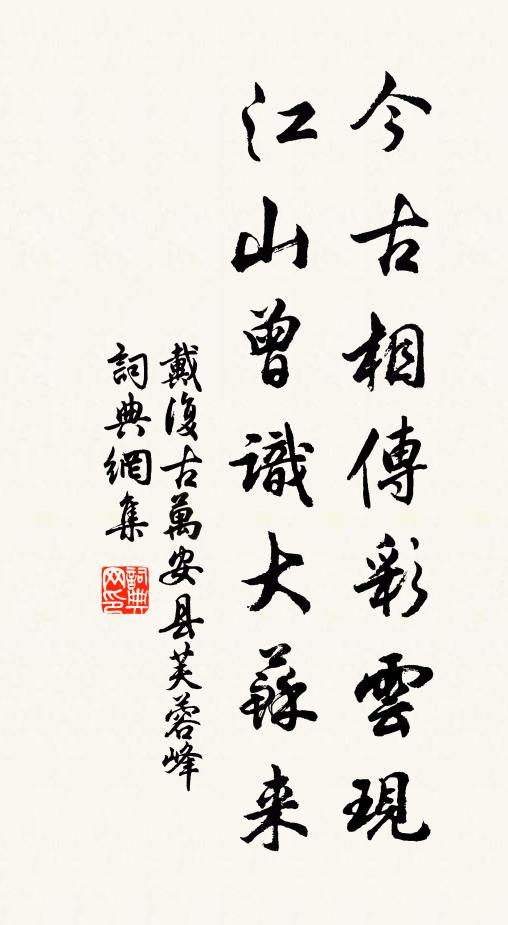 今古相傳彩雲現
江山曾識大蘇来
戴復古萬安县芙蓉峰
詞典網集
詞典網印